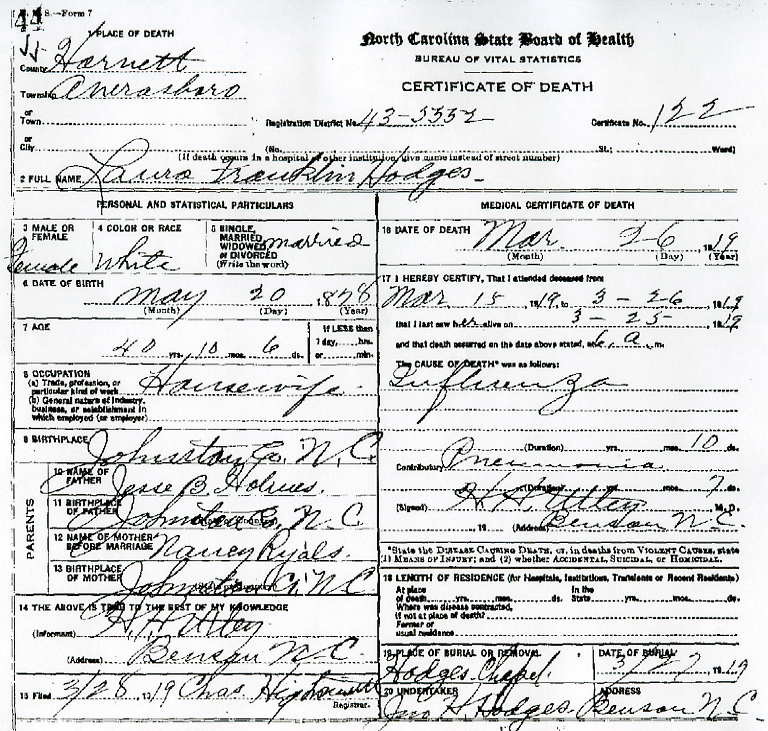 S.—Form 7
1 PLACE OF DEATH
County Harnett
Township Averasboro
or
Town
or
City
North Carolina State Board of Health
BUREAU OF VITAL STATISTICS
CERTIFICATE OF DEATH
Registration District No. 43-5552 Certificate No. 122
(No. St.; Ward)
(If death occurs in a hospital or other institution, give name instead of street number)
2 FULL NAME Laura Franklin Hodges
PERSONAL AND STATISTICAL PARTICULARS
3 MALE OR FEMALE Female
4 COLOR OR RACE White
5 SINGLE, MARRIED, WIDOWED, OR DIVORCED (Write the word) married
6 DATE OF BIRTH May 20 1878
(Month) (Day) (Year)
7 AGE
40 yrs. 10 mos. 6 ds.
If LESS than
1 day, hrs.
or min.
8 OCCUPATION
(a) Trade, profession, or
particular kind of work Housewife
(b) General nature of industry,
business, or establishment in
which employed (or employer)
9 BIRTHPLACE Johnston Co. N.C.
PARENTS
10 NAME OF FATHER Jesse B. Holmes
11 BIRTHPLACE OF FATHER Johnston Co. N C
12 NAME OF MOTHER BEFORE MARRIAGE Nancy Ryals
13 BIRTHPLACE OF MOTHER Johnston Co. N C
14 THE ABOVE IS TRUE TO THE BEST OF MY KNOWLEDGE
(Informant) H. H. Utley
(Address) Benson N C
15 Filed 3/28, 1919 Chas.
Registrar.
MEDICAL CERTIFICATE OF DEATH
16 DATE OF DEATH Mar. 26 1919
(Month) (Day) (Year)
17 I HEREBY CERTIFY, That I attended deceased from
Mar 18 1919, to 3-26 1919
that I last saw her alive on 3-25 1919
and that death occurred on the date above stated, at 6 a. m.
The CAUSE OF DEATH* was as follows:
Influenza
(Duration) yrs. mos. 10 ds.
Contributory Pneumonia
(Duration) yrs. mos. 7 ds.
(Signed) H. H. Utley M. D.
, 19 (Address) Benson N. C.
*State the DISEASE CAUSING DEATH, or, in deaths from VIOLENT CAUSES, state
(1) MEANS OF INJURY; and (2) whether ACCIDENTAL, SUICIDAL, OR HOMICIDAL.
18 LENGTH OF RESIDENCE (for Hospitals, Institutions, Transients or Recent Residents)
At place
of death yrs. mos. ds.
In the
State yrs. mos. ds.
Where was disease contracted,
if not at place of death?
Former or
usual residence
19 PLACE OF BURIAL OR REMOVAL DATE OF BURIAL
Hodges Chapel 3/27 1919
20 UNDERTAKER ADDRESS
Jno H. Hodges Benson N.C.